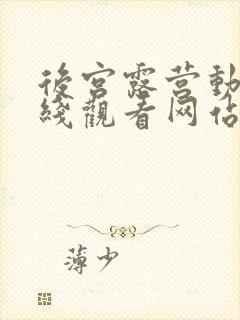 後宫露营動
綫觀看网佔
薄少